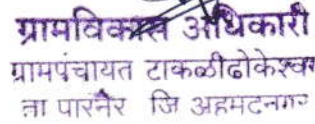 ग्रामविकास अधिकारी
ग्रामपंचायत टाकळीढोकेश्वर
ता पारनेर जि अहमटनगर